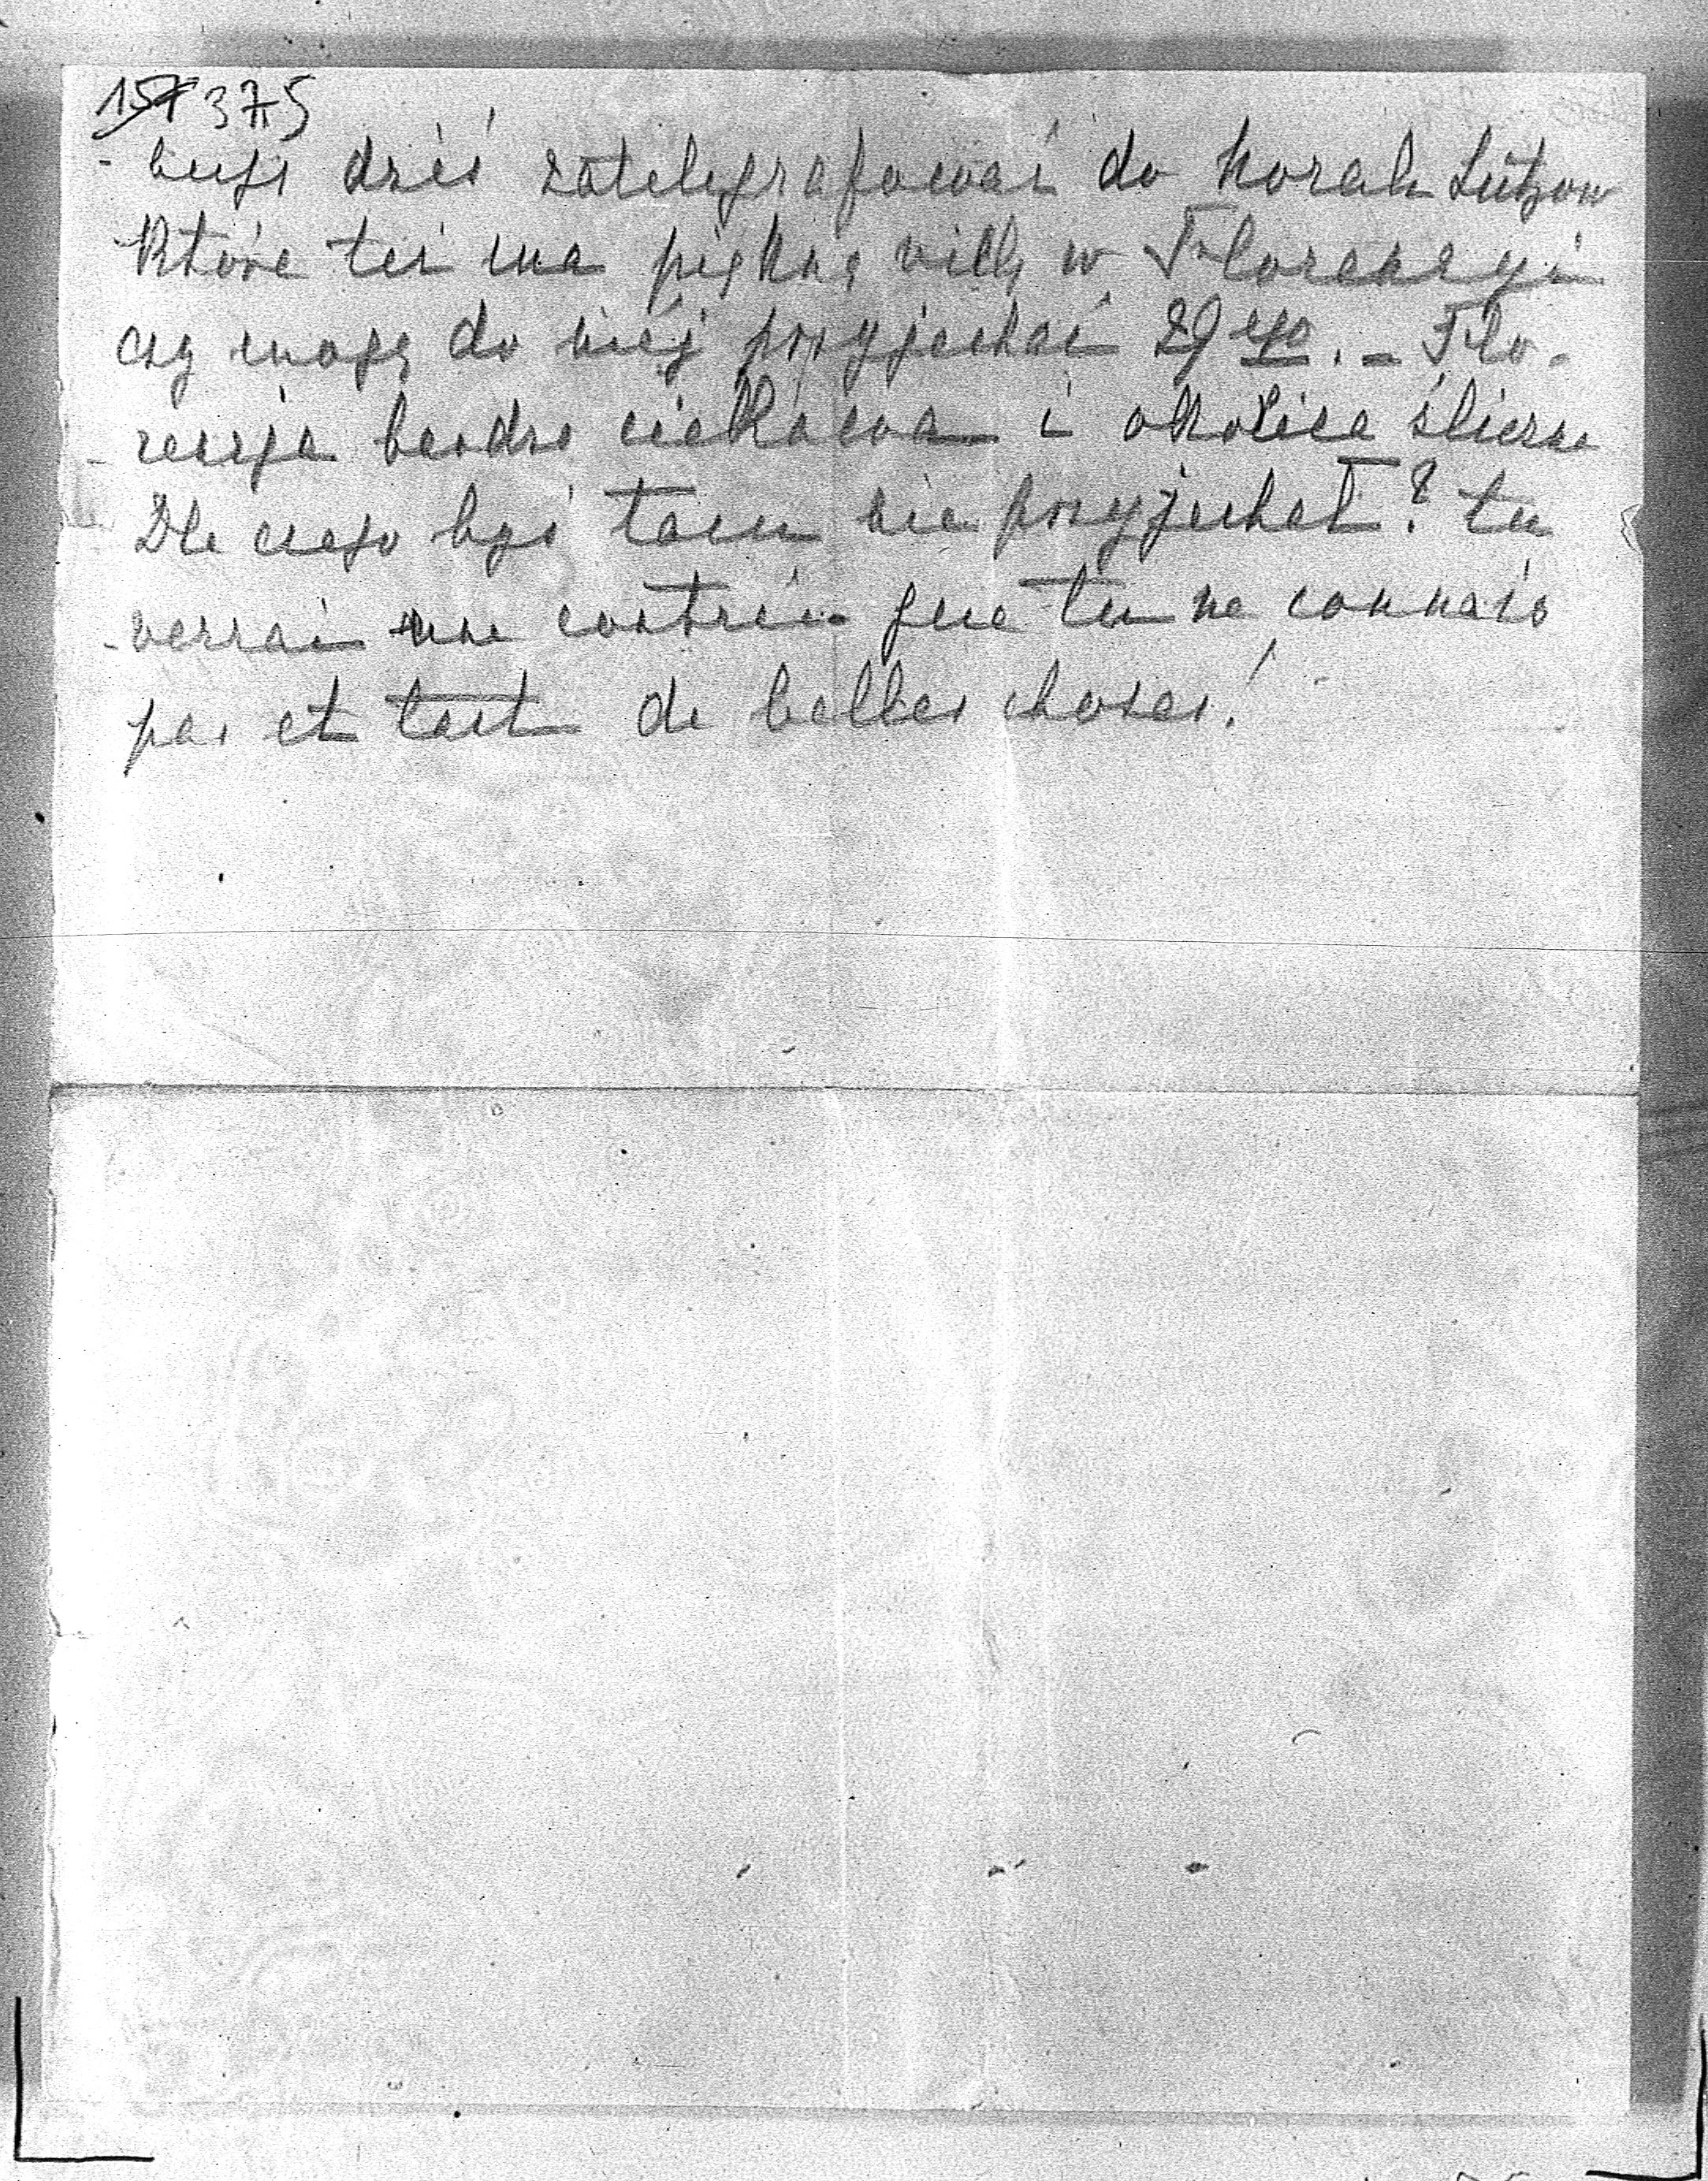 375
dziś zatelegrafować do Korah Lützow
Która też ma piękną villę w Florencyi
czy mogę do niéj przyjechać 29 go. – Flo-
rencja bardzo ciekawa i okolica śliczna
Dla czego byś tam nie przyjechał? tu
verrai une contrée que tu ne connais
pas et tant de belles choses!